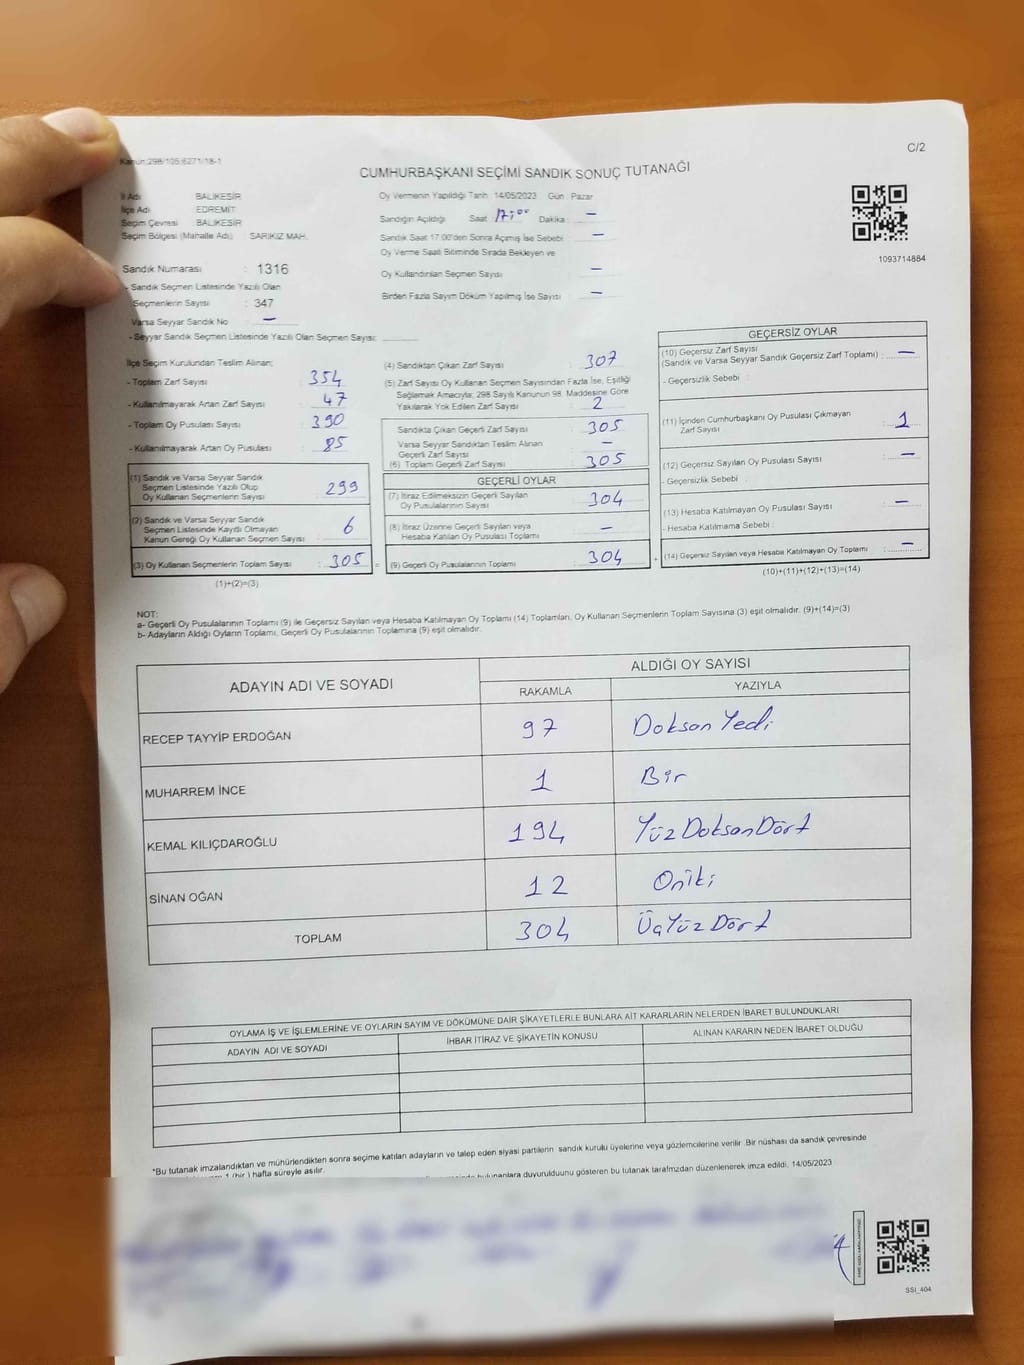 Kanun:298/105,6271/18-1
C/2
CUMHURBAŞKANI SEÇİMİ SANDIK SONUÇ TUTANAĞI
İl Adı BALIKESİR
İlçe Adı EDREMİT
Seçim Çevresi : BALIKESİR
Seçim Bölgesi (Mahalle Adı) : SARIKIZ MAH.
Sandık Numarası : 1316
- Sandık Seçmen Listesinde Yazılı Olan
Seçmenlerin Sayısı : 347
Varsa Seyyar Sandık No –
- Seyyar Sandık Seçmen Listesinde Yazılı Olan Seçmen Sayısı:
Oy Vermenin Yapıldığı Tarih: 14/05/2023 Gün : Pazar
Sandığın Açıldığı Saat 17:00 Dakika : –
Sandık Saat 17:00'den Sonra Açılmış İse Sebebi : –
Oy Verme Saati Bitiminde Sırada Bekleyen ve
Oy Kullandırılan Seçmen Sayısı –
Birden Fazla Sayım Döküm Yapılmış İse Sayısı : –
1093714884
İlçe Seçim Kurulundan Teslim Alınan;
- Toplam Zarf Sayısı : 354
- Kullanılmayarak Artan Zarf Sayısı : 47
- Toplam Oy Pusulası Sayısı : 390
- Kullanılmayarak Artan Oy Pusulası : 85
(1) Sandık ve Varsa Seyyar Sandık
Seçmen Listesinde Yazılı Olup
Oy Kullanan Seçmenlerin Sayısı : 299
(2) Sandık ve Varsa Seyyar Sandık
Seçmen Listesinde Kayıtlı Olmayan
Kanun Gereği Oy Kullanan Seçmen Sayısı : 6
(3) Oy Kullanan Seçmenlerin Toplam Sayısı : 305
(1)+(2)=(3)
(4) Sandıktan Çıkan Zarf Sayısı : 307
(5) Zarf Sayısı Oy Kullanan Seçmen Sayısından Fazla İse, Eşitliği
Sağlamak Amacıyla; 298 Sayılı Kanunun 98. Maddesine Göre
Yakılarak Yok Edilen Zarf Sayısı : 2
Sandıkta Çıkan Geçerli Zarf Sayısı : 305
Varsa Seyyar Sandıktan Teslim Alınan
Geçerli Zarf Sayısı : –
(6) Toplam Geçerli Zarf Sayısı : 305
GEÇERLİ OYLAR
(7) İtiraz Edilmeksizin Geçerli Sayılan
Oy Pusulalarının Sayısı : 304
(8) İtiraz Üzerine Geçerli Sayılan veya
Hesaba Katılan Oy Pusulası Toplamı : –
= (9) Geçerli Oy Pusulalarının Toplamı : 304 +
GEÇERSİZ OYLAR
(10) Geçersiz Zarf Sayısı
(Sandık ve Varsa Seyyar Sandık Geçersiz Zarf Toplamı) : –
- Geçersizlik Sebebi :
(11) İçinden Cumhurbaşkanı Oy Pusulası Çıkmayan
Zarf Sayısı : 1
(12) Geçersiz Sayılan Oy Pusulası Sayısı : –
- Geçersizlik Sebebi :
(13) Hesaba Katılmayan Oy Pusulası Sayısı : –
- Hesaba Katılmama Sebebi :
(14) Geçersiz Sayılan veya Hesaba Katılmayan Oy Toplamı : –
(10)+(11)+(12)+(13)=(14)
NOT:
a- Geçerli Oy Pusulalarının Toplamı (9) ile Geçersiz Sayılan veya Hesaba Katılmayan Oy Toplamı (14) Toplamları, Oy Kullanan Seçmenlerin Toplam Sayısına (3) eşit olmalıdır. (9)+(14)=(3)
b- Adayların Aldığı Oyların Toplamı, Geçerli Oy Pusulalarının Toplamına (9) eşit olmalıdır.
ADAYIN ADI VE SOYADI
ALDIĞI OY SAYISI
RAKAMLA YAZIYLA
RECEP TAYYİP ERDOĞAN 97 Doksan Yedi
MUHARREM İNCE 1 Bir
KEMAL KILIÇDAROĞLU 194 YüzDoksanDört
SİNAN OĞAN 12 Oniki
TOPLAM 304 ÜçYüzDört
OYLAMA İŞ VE İŞLEMLERİNE VE OYLARIN SAYIM VE DÖKÜMÜNE DAİR ŞİKAYETLERLE BUNLARA AİT KARARLARIN NELERDEN İBARET BULUNDUKLARI
ADAYIN ADI VE SOYADI İHBAR İTİRAZ VE ŞİKAYETİN KONUSU ALINAN KARARIN NEDEN İBARET OLDUĞU
*Bu tutanak imzalandıktan ve mühürlendikten sonra seçime katılan adayların ve talep eden siyasi partilerin sandık kurulu üyelerine veya gözlemcilerine verilir. Bir nüshası da sandık çevresinde
1 (bir) hafta süreyle asılır.
bulunanlara duyurulduunu gösteren bu tutanak tarafımızdan düzenlenerek imza edildi. 14/05/2023
SSI_404